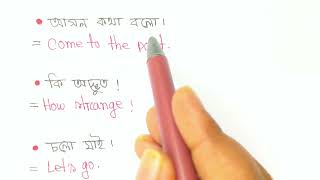 • আসল কথা বলো।
= Come to the point.
• কি অদ্ভুত !
= How strange !
• চলো যাই!
= Let's go.